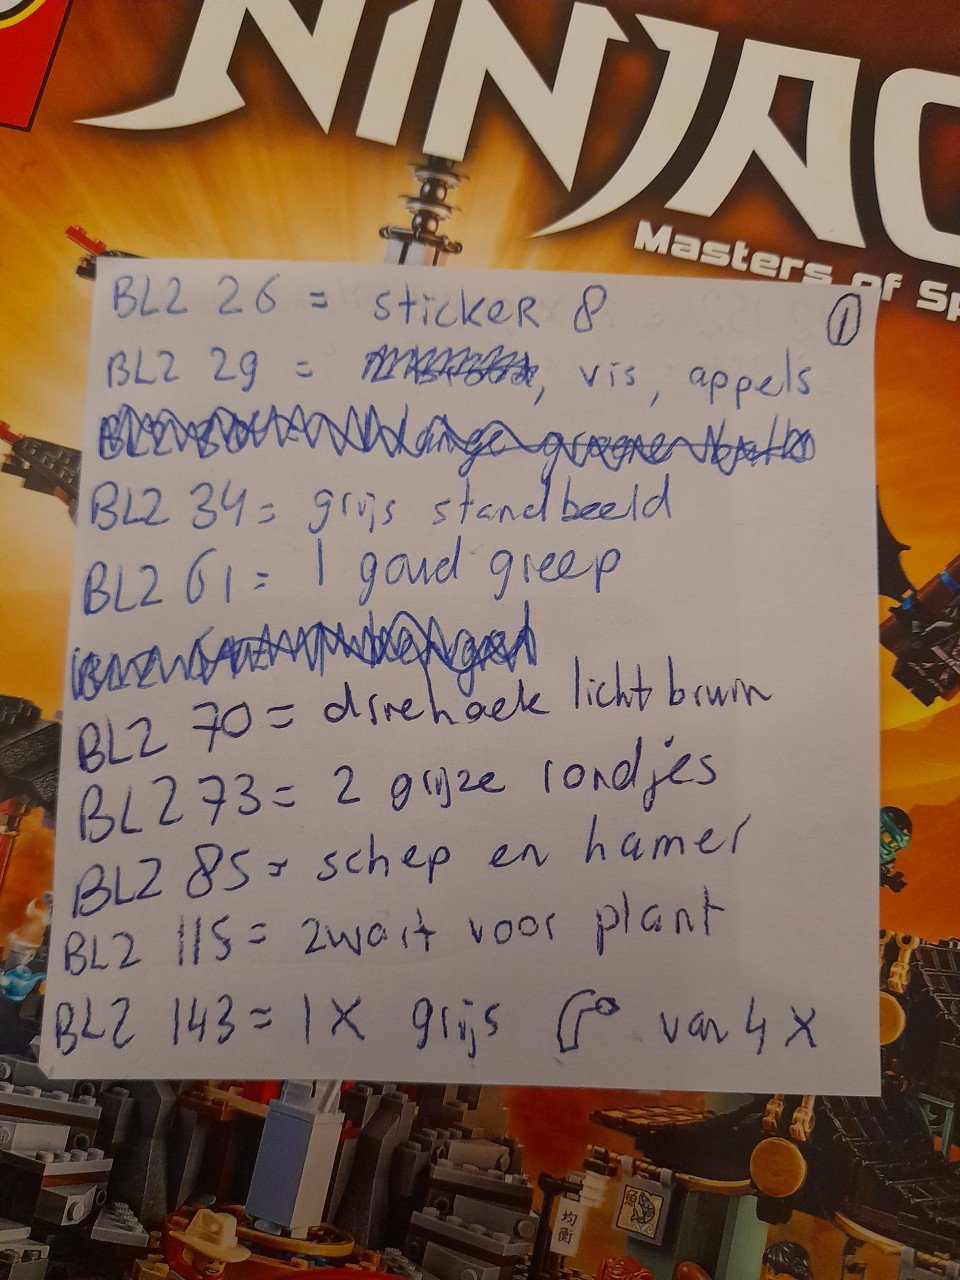 NINJAGO
Masters of Sp
BLZ 26 = sticker 8
①
BLZ 29 = , vis, appels
BLZ 34 = grijs standbeeld
BLZ 61 = 1 goud greep
BLZ 70 = driehoek lichtbruin
BLZ 73 = 2 grijze rondjes
BLZ 85 = schep en hamer
BLZ 115 = zwart voor plant
BLZ 143 = 1 X grijs van 4 X
均
衡